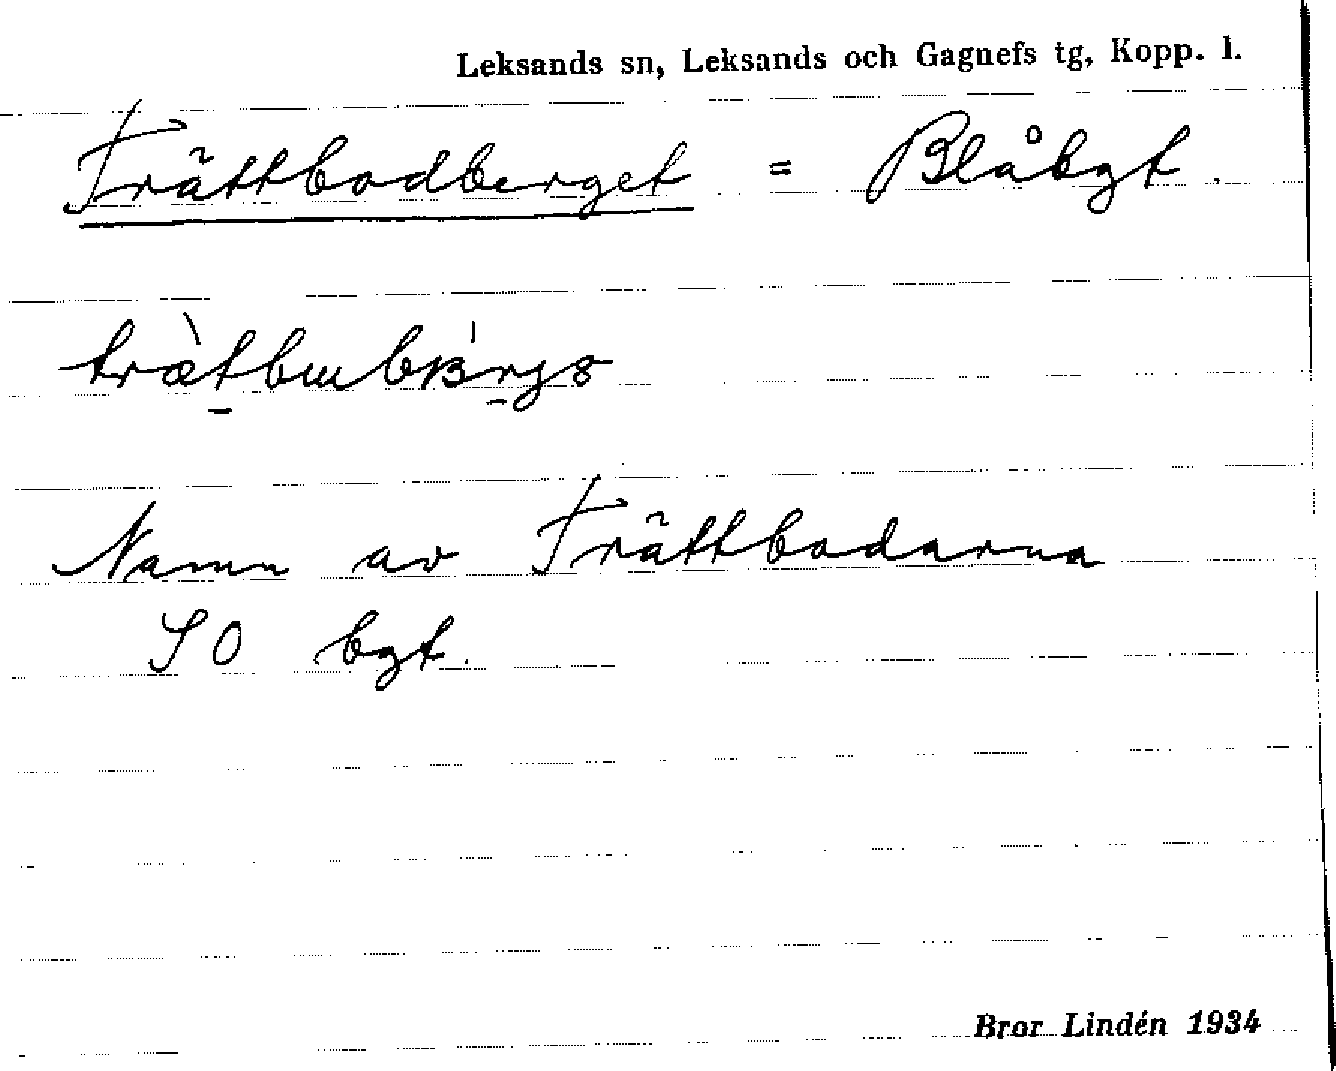 Leksands sn, Leksands och Gagnefs tg, Kopp. l.
Trättbodberget = Blåbgt.
Namn av Trättbodarna
SO bgt.
Bror Lindén 1934